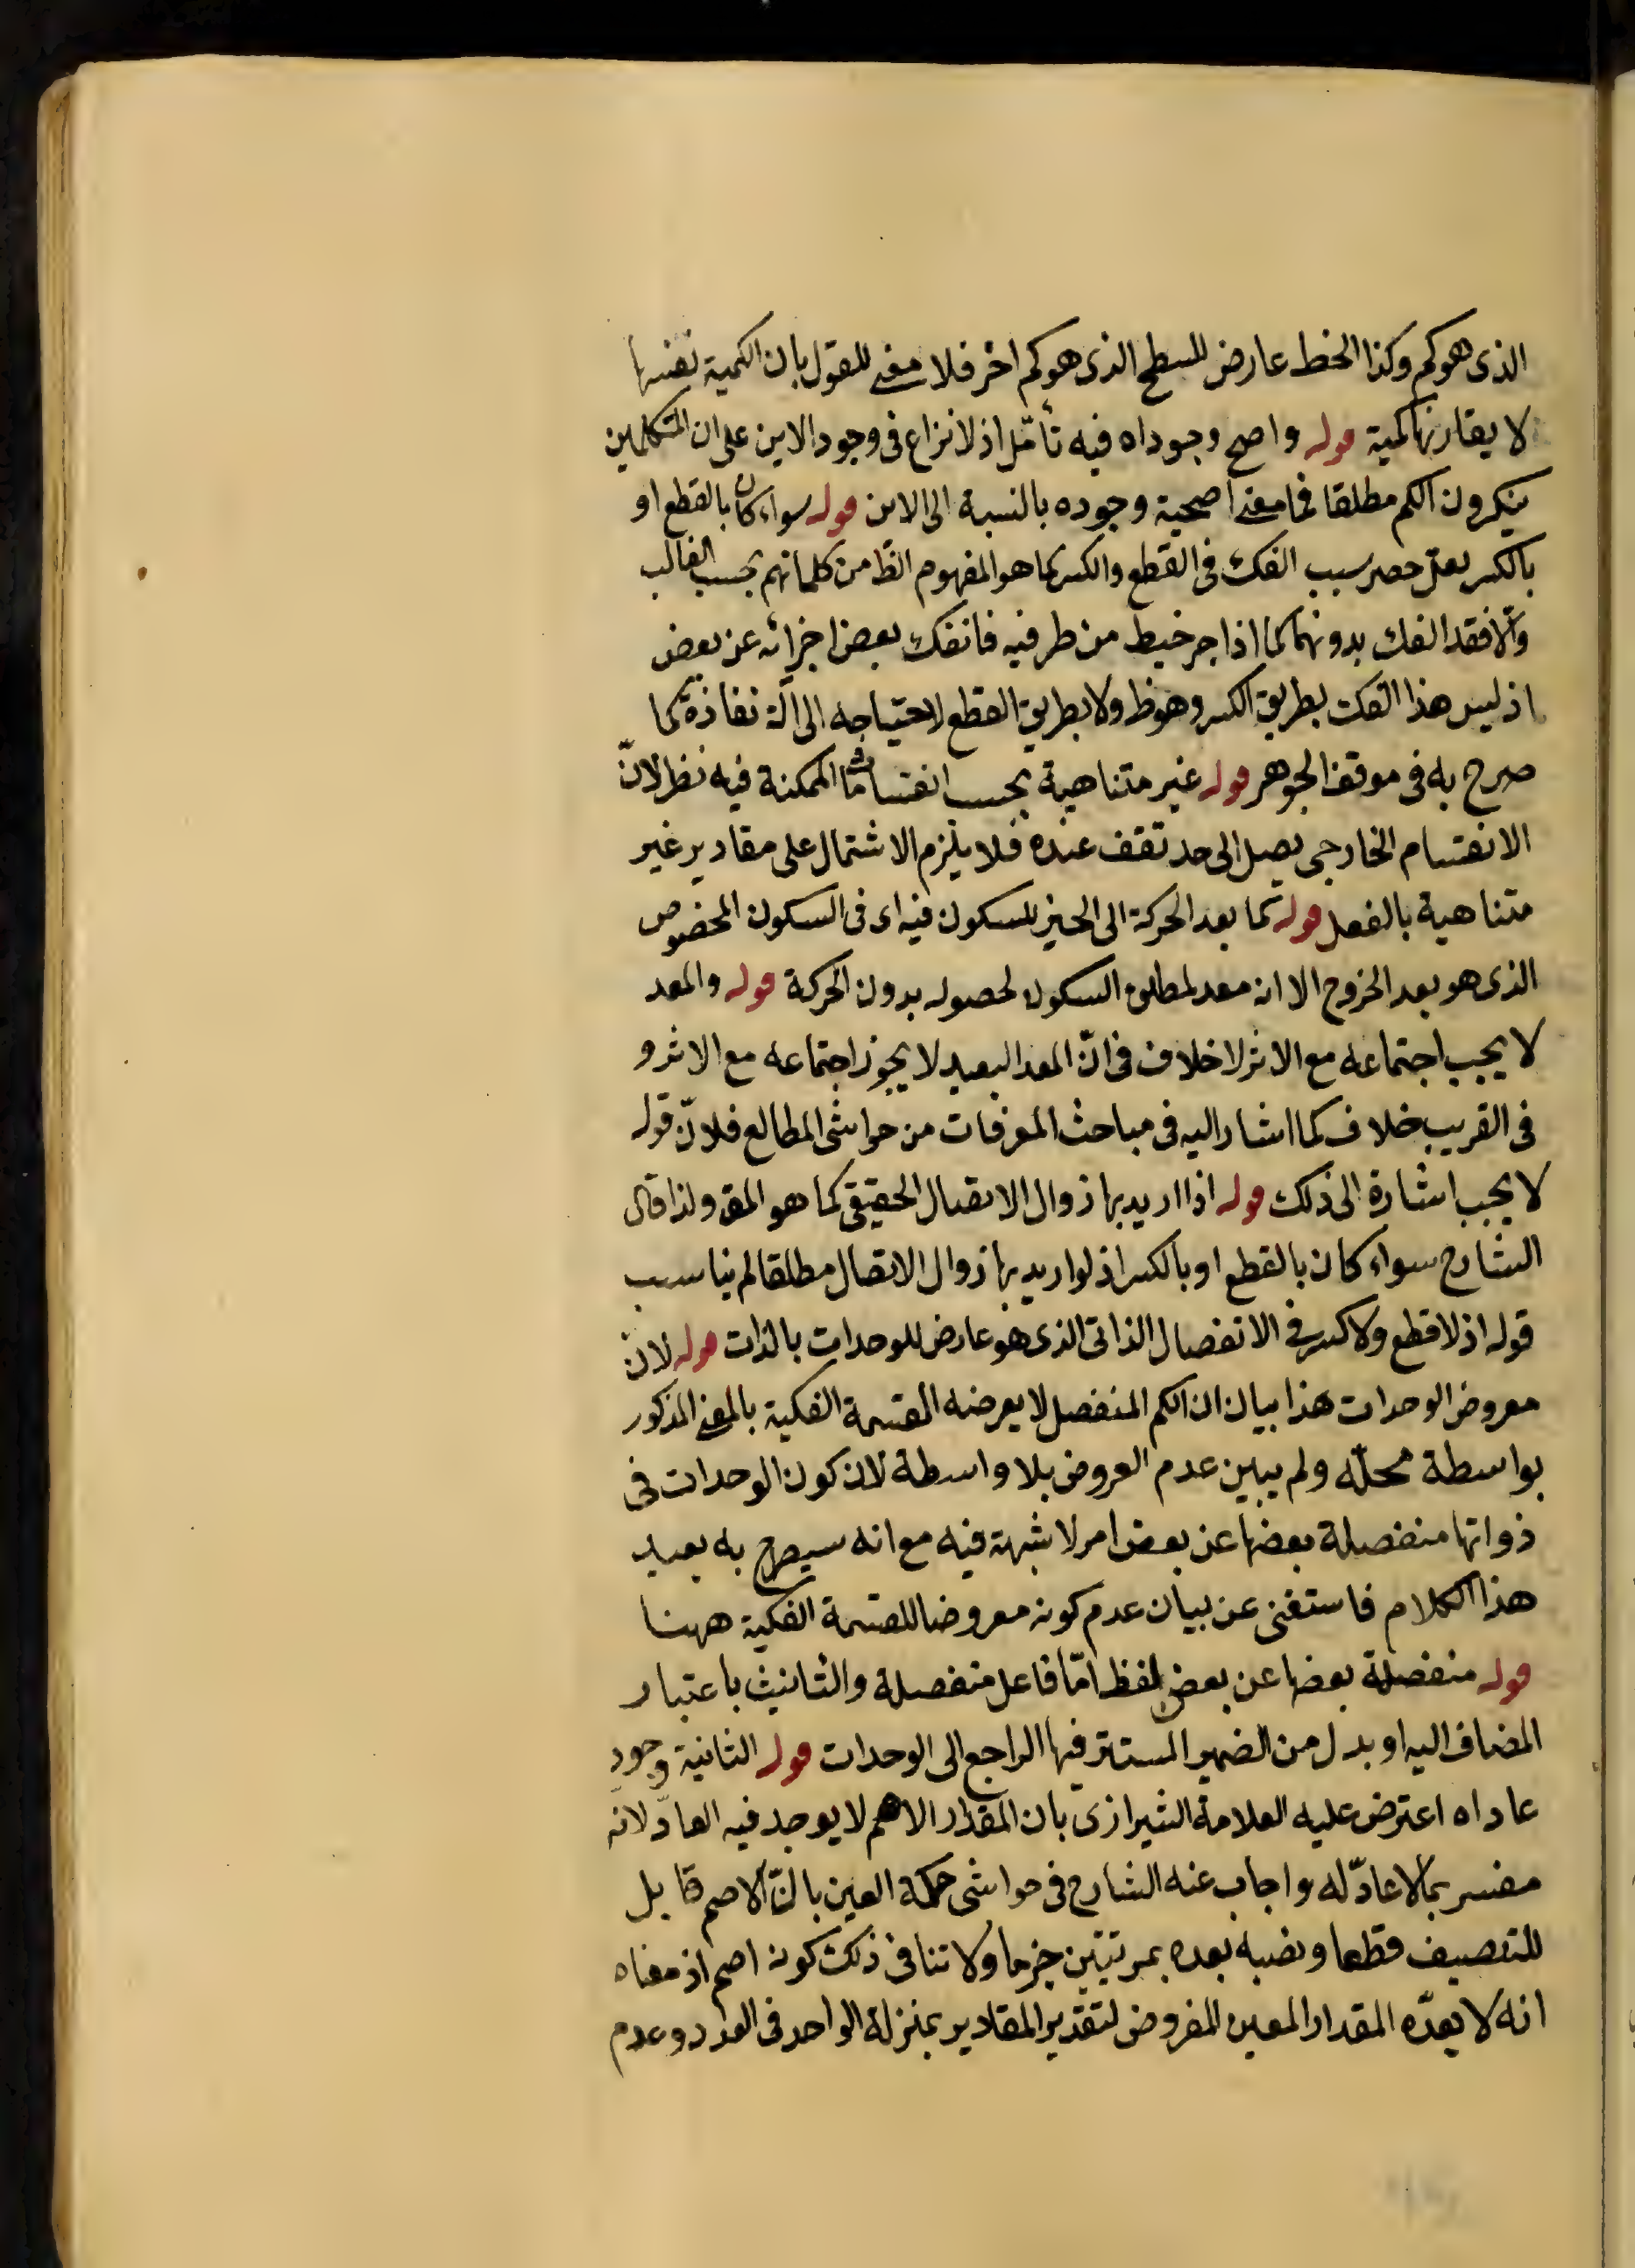 الذى هو كم وكذا الخط عارض للسطح الذى هو كم اخر فلا معنى للقول بان الكمية نفسها
لا يقارنها كمية قوله واصح وجوداه فيه تأمّل اذ لا نزاع فى وجود الاين على ان المتكلمين
ينكرون الكم مطلقا فما معنى اصحية وجوده بالنسبة الى الاين قوله سواء كان بالقطع او
بالكسر لعلّ حصر سبب الفك فى القطع والكسر كما هو المفهوم الظ من كلماتهم بحسب الغالب
والّا فقد الفك بدونهما كما اذا جر خيط من طرفيه فانفك بعض اجزائه عن بعض
اذ ليس هذا الفك بطريق الكسر وهو ظ ولا بطريق القطع لاحتياجه الى الة نفاذة كما
صرح به فى موقف الجوهر قوله غير متناهية بحسب انقساماته الممكنة فيه نظر لانّ
الانقسام الخارجى يصل الى حد تقف عنده فلا يلزم الاشتمال على مقادير غير
متناهية بالفعل قوله كما بعد الحركة الى الحيز للسكون فيه اى فى السكون المخصوص
الذى هو بعد الخروج الا انه معد لمطلق السكون لحصوله بدون الحركة قوله والمعد
لا يجب اجتماعه مع الاثر لا خلاف فى انّ المعد البعيد لا يجوز اجتماعه مع الاثر و
فى القريب خلاف كما اشار اليه فى مباحث المعرفات من حواشى المطالع فلانّ قوله
لا يجب اشارة الى ذلك قوله اذا اريد بها زوال الاتصال الحقيقى كما هو المق ولذا قال
الشارح سواء كان بالقطع او بالكسر اذ لو اريد بها زوال الاتصال مطلقا لم يناسب
قوله اذ لا قطع ولا كسر فى الانفصال الذاتى الذى هو عارض للوحدات بالذات قوله لان
معروض الوحدات هذا بيان ان الكم المنفصل لا يعرضه القسمة الفكية بالمعنى المذكور
بواسطة محلّه ولم يبين عدم العروض بلا واسطة لان كون الوحدات فى
ذواتها منفصلة بعضها عن بعض امر لا شبهة فيه مع انه سيصرح به بعيد
هذا الكلام فاستغنى عن بيان عدم كونه معروضا للقسمة الفكية ههنا
قوله منفصلة بعضها عن بعض لفظ امّا فاعل منفصلة والتانيث باعتبار
المضاف اليه او بدل من الضمير المستتر فيها الراجع الى الوحدات قوله الثانية وجود
عاداه اعترض عليه العلامة الشيرازى بان المقدار الاصم لا يوجد فيه العادّ لانه
مفسر بما لا عادّ له واجاب عنه الشارح فى حواشى حكمة العين بانّ الاصم قابل
للتنصيف قطعا ونصفه بعده بمرتين جزما ولا تنافى ذلك كونه اصم اذ معناه
انه لا يعدّه المقدار المعين المفروض لتقدير المقادير بمنزلة الواحد فى العدد وعدم